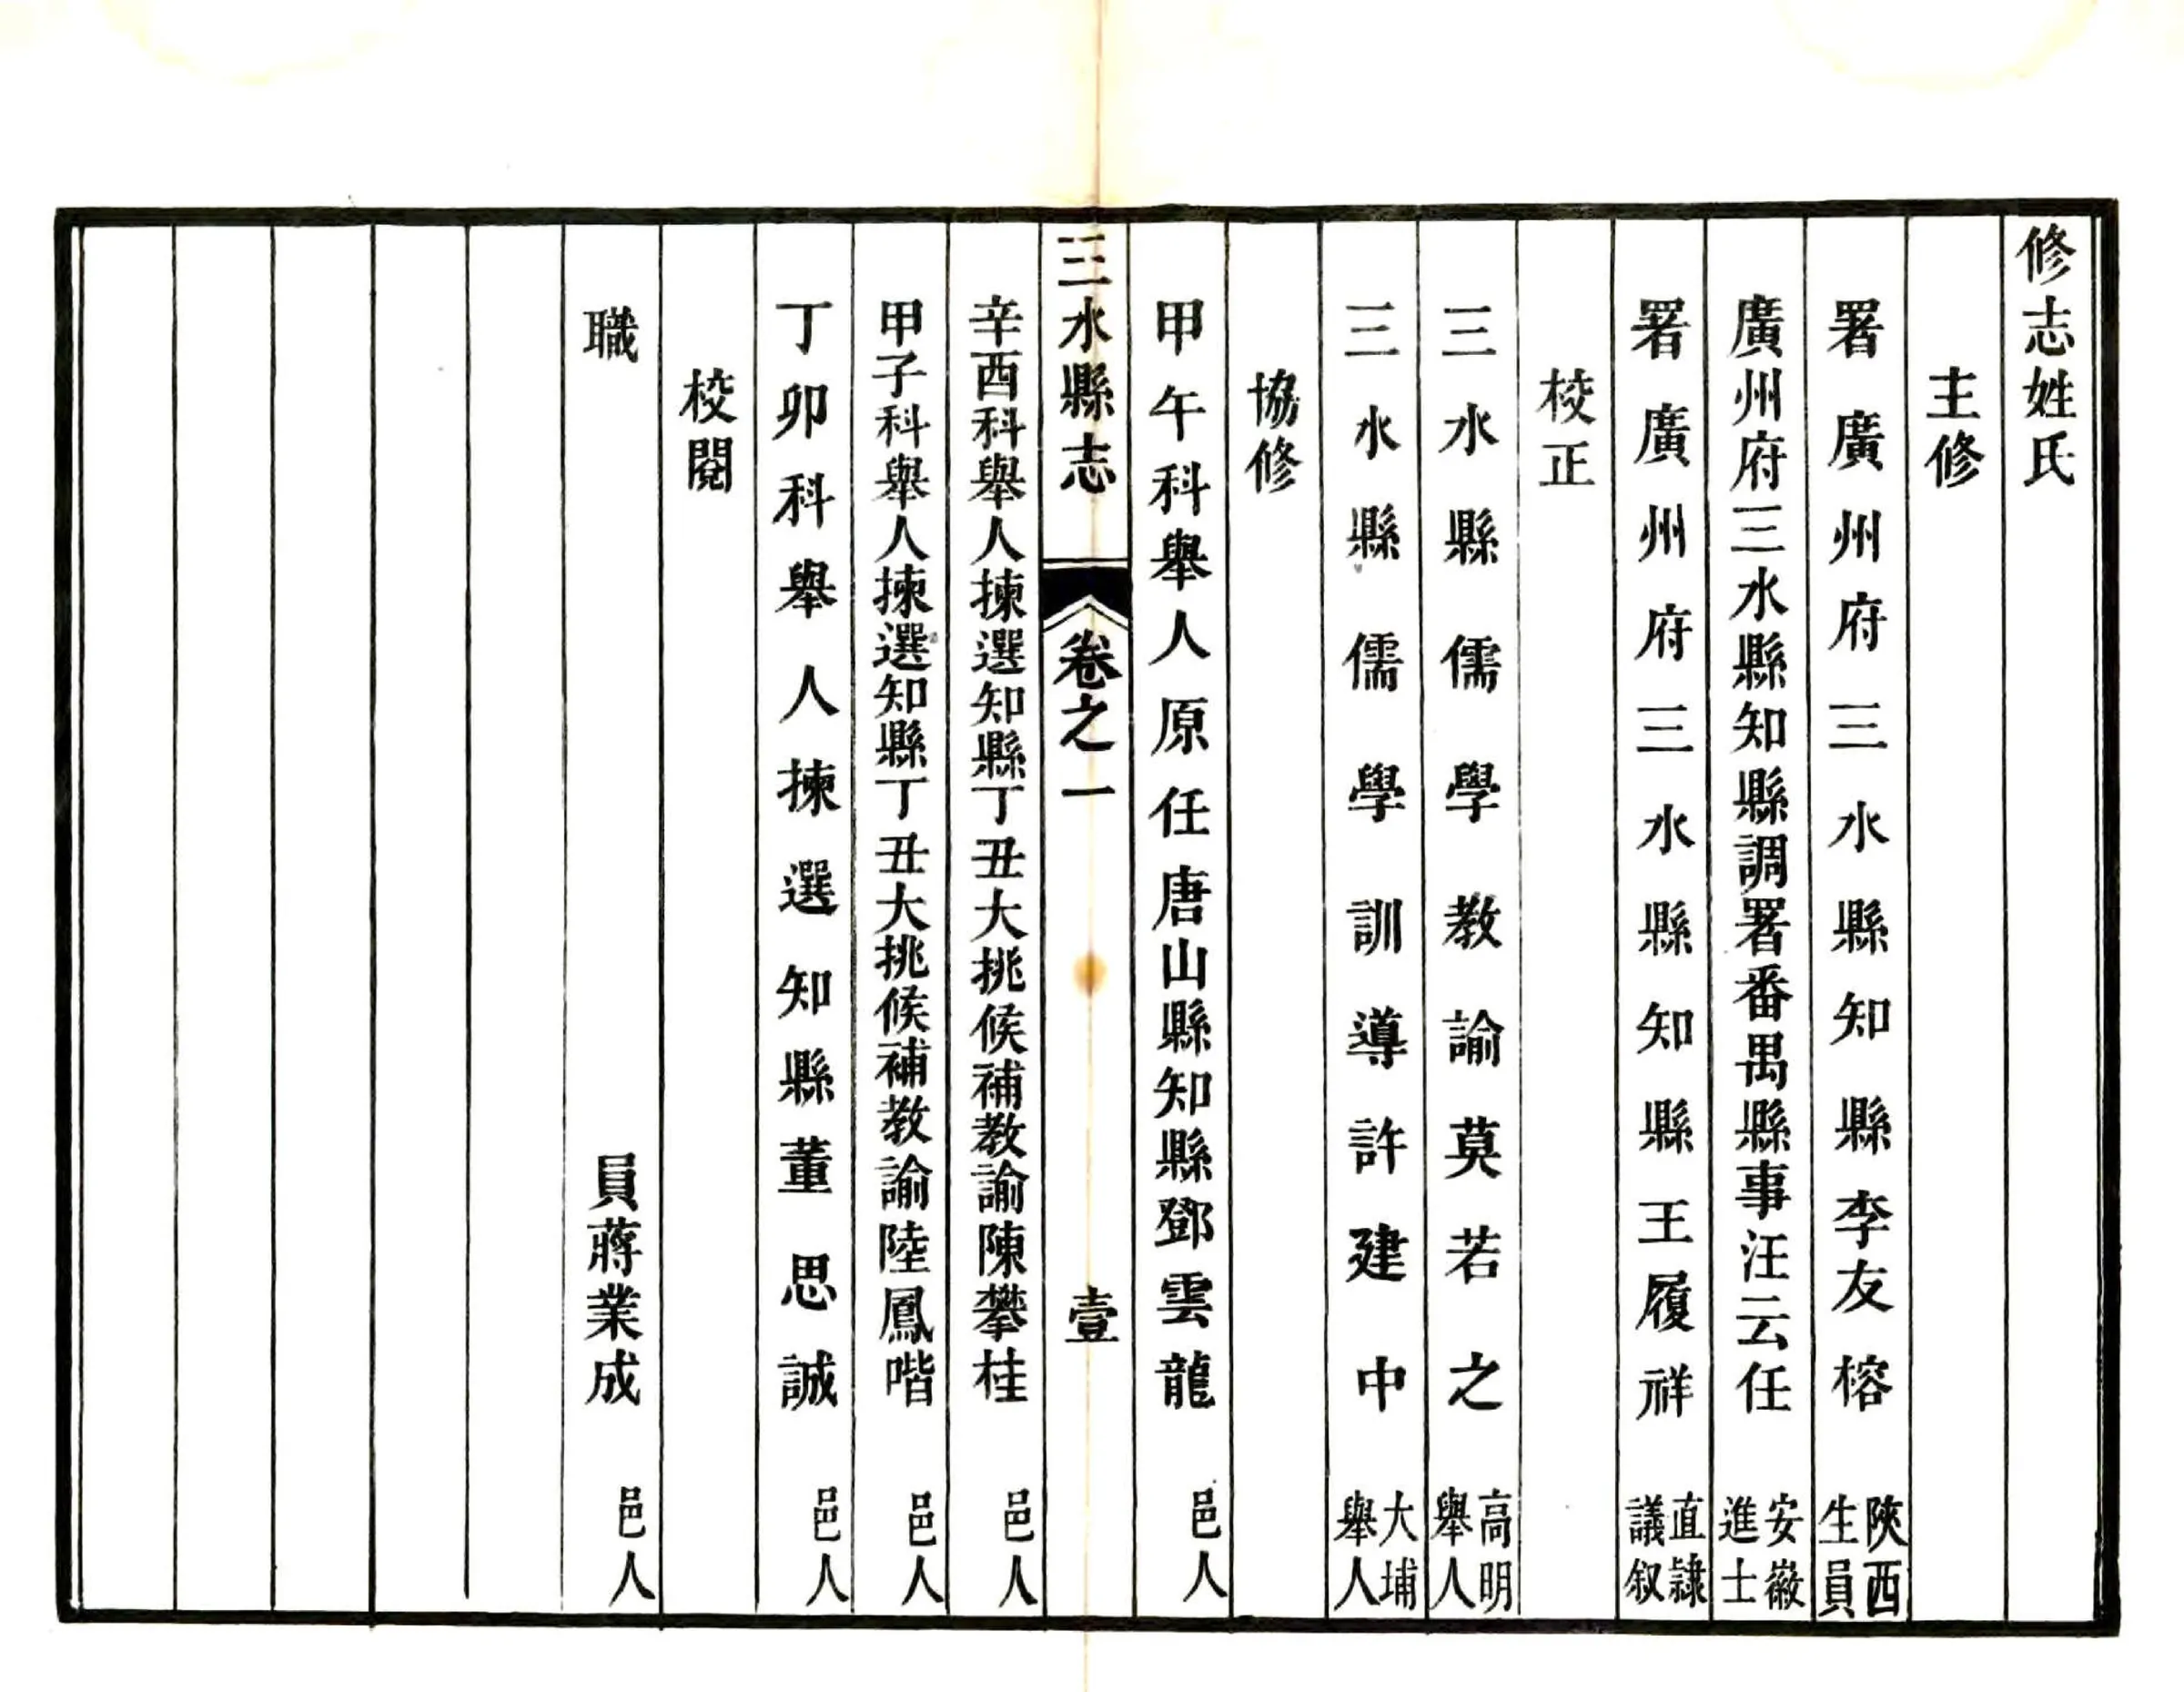 修志姓氏
主修
署廣州府三水縣知縣李友榕 陝西生員
廣州府三水縣知縣調署番禺縣事汪云任 安徽進士
署廣州府三水縣知縣王履祥 直隸議叙
校正
三水縣儒學教諭莫若之 高明舉人
三水縣儒學訓導許建中 大埔舉人
協修
甲午科舉人原任唐山縣知縣鄧雲龍 邑人
三水縣志 卷之一 壹
辛酉科舉人揀選知縣丁丑大挑候補教諭陳攀桂 邑人
甲子科舉人揀選知縣丁丑大挑候補教諭陸鳳喈 邑人
丁卯科舉人揀選知縣董思誠 邑人
校閱
職員蔣業成 邑人